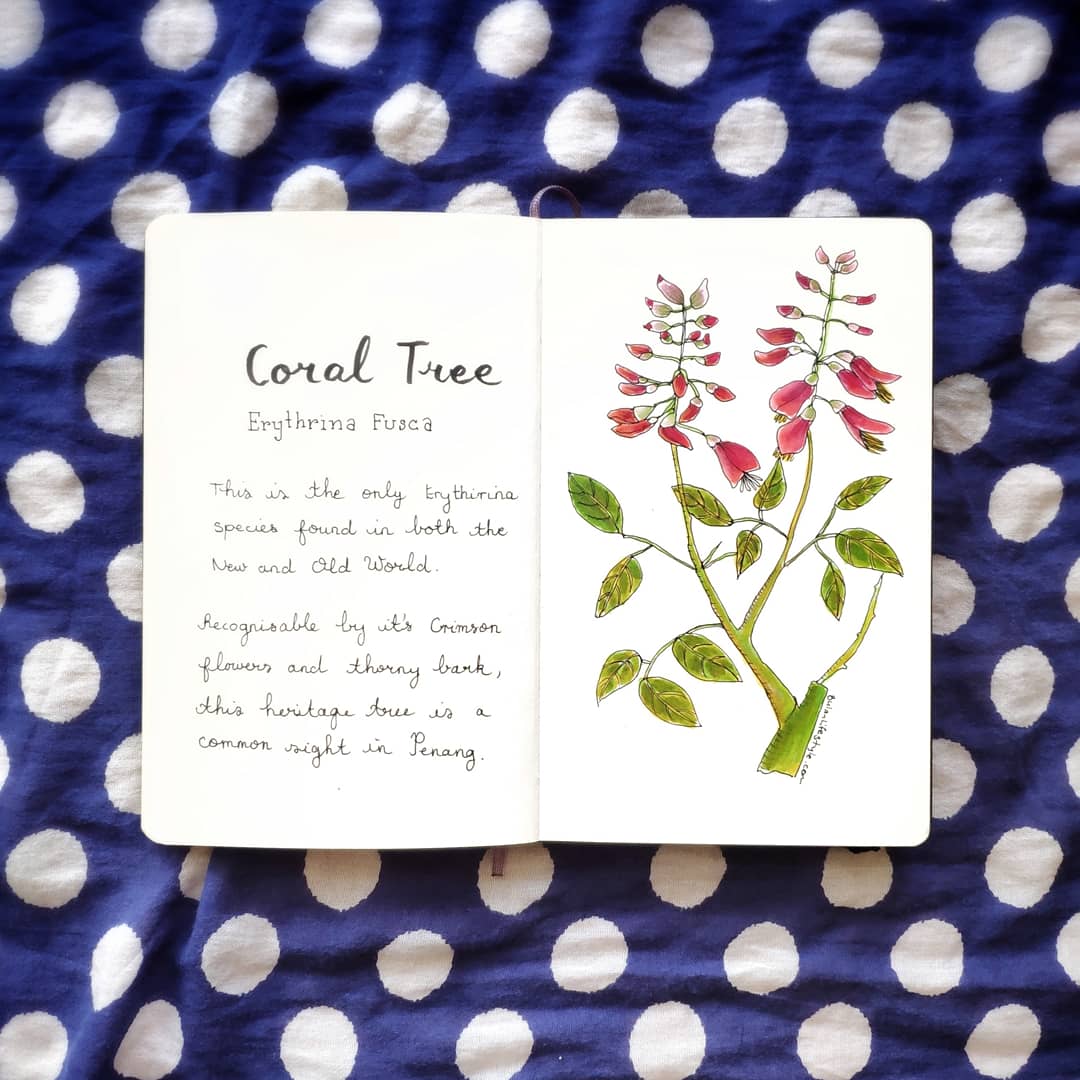 Coral Tree
Erythrina Fusca
This is the only Erythirina
species found in both the
New and Old World.
Recognisable by it's Crimson
flowers and thorny bark,
this heritage tree is a
common sight in Penang.